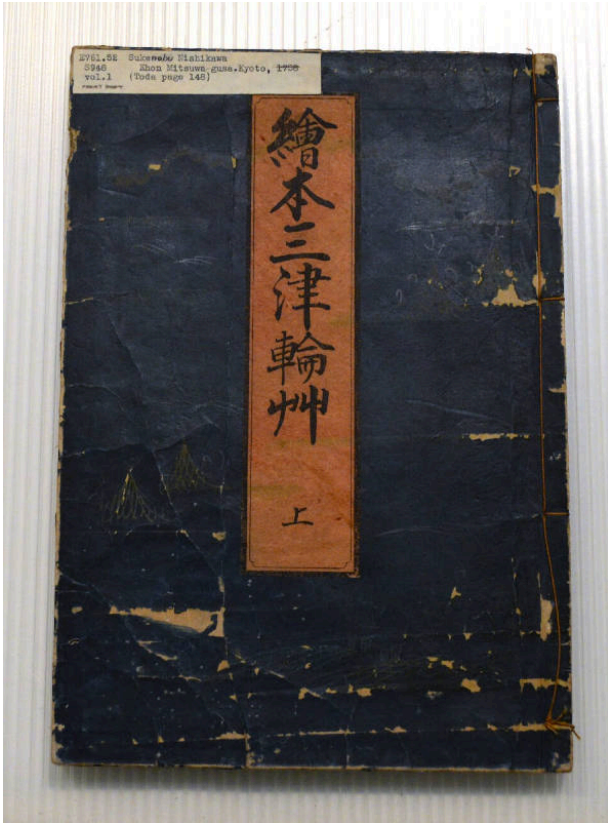 E761.52 Sukenobu Nishikawa
S946 Ehon Mitsuwa-gusa.Kyoto, 1758
vol.1 (Toda page 148)
繪本三津輪艸
上